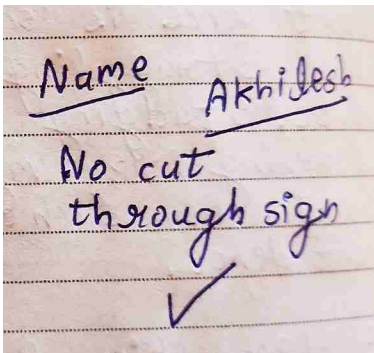 Name Akhilesh
No cut
through sign
✓